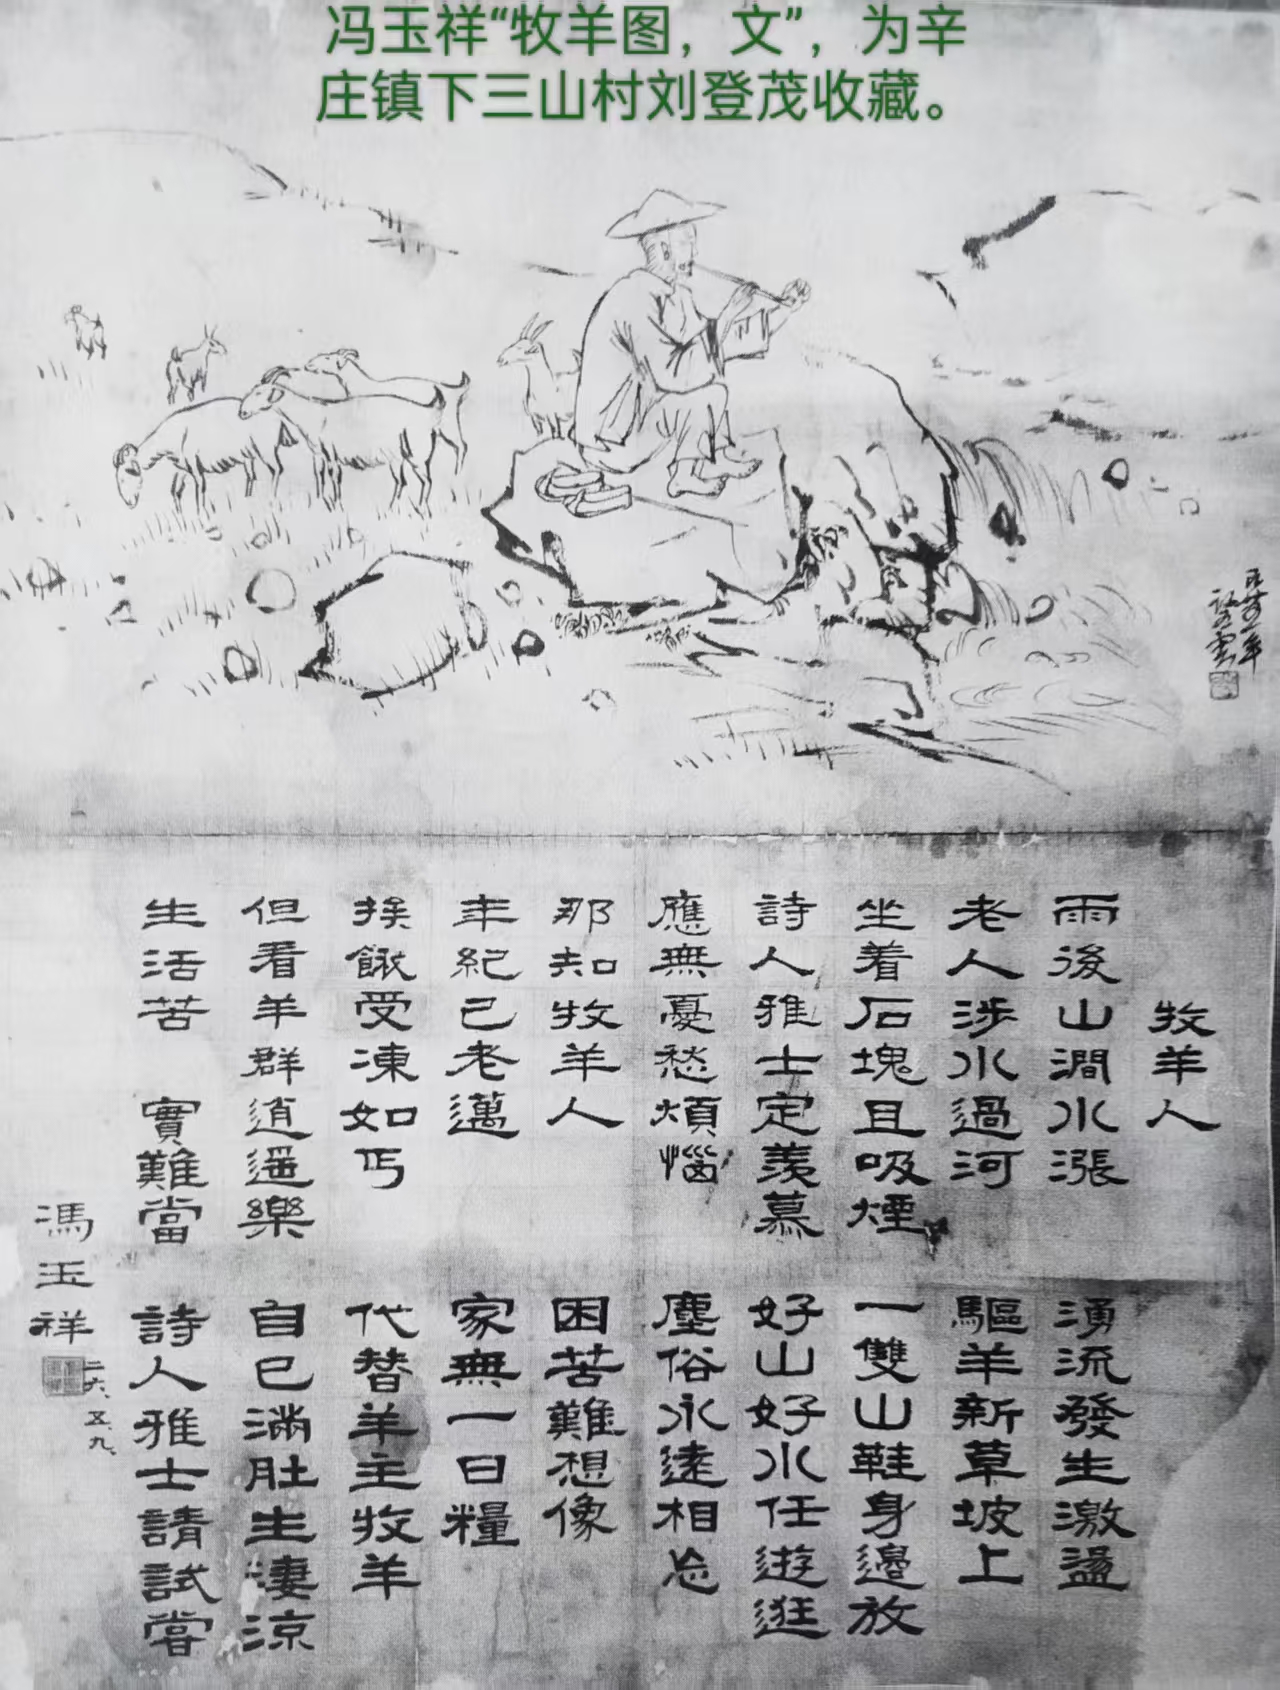 冯玉祥“牧羊图，文”，为辛
庄镇下三山村刘登茂收藏。
牧羊人
雨後山澗水漲 湧流發生激盪
老人涉水過河 驅羊新草坡上
坐着石塊且吸煙 一雙山鞋身邊放
詩人雅士定羨慕 好山好水任遊逛
應無憂愁煩惱 塵俗永遠相忘
那知牧羊人 困苦難想像
年紀已老邁 家無一日糧
挨餓受凍如丐 代替羊主牧羊
但看羊群逍遥樂 自己滿肚生淒涼
生活苦 實難當 詩人雅士請試嘗
馮玉祥
二六、五、九、